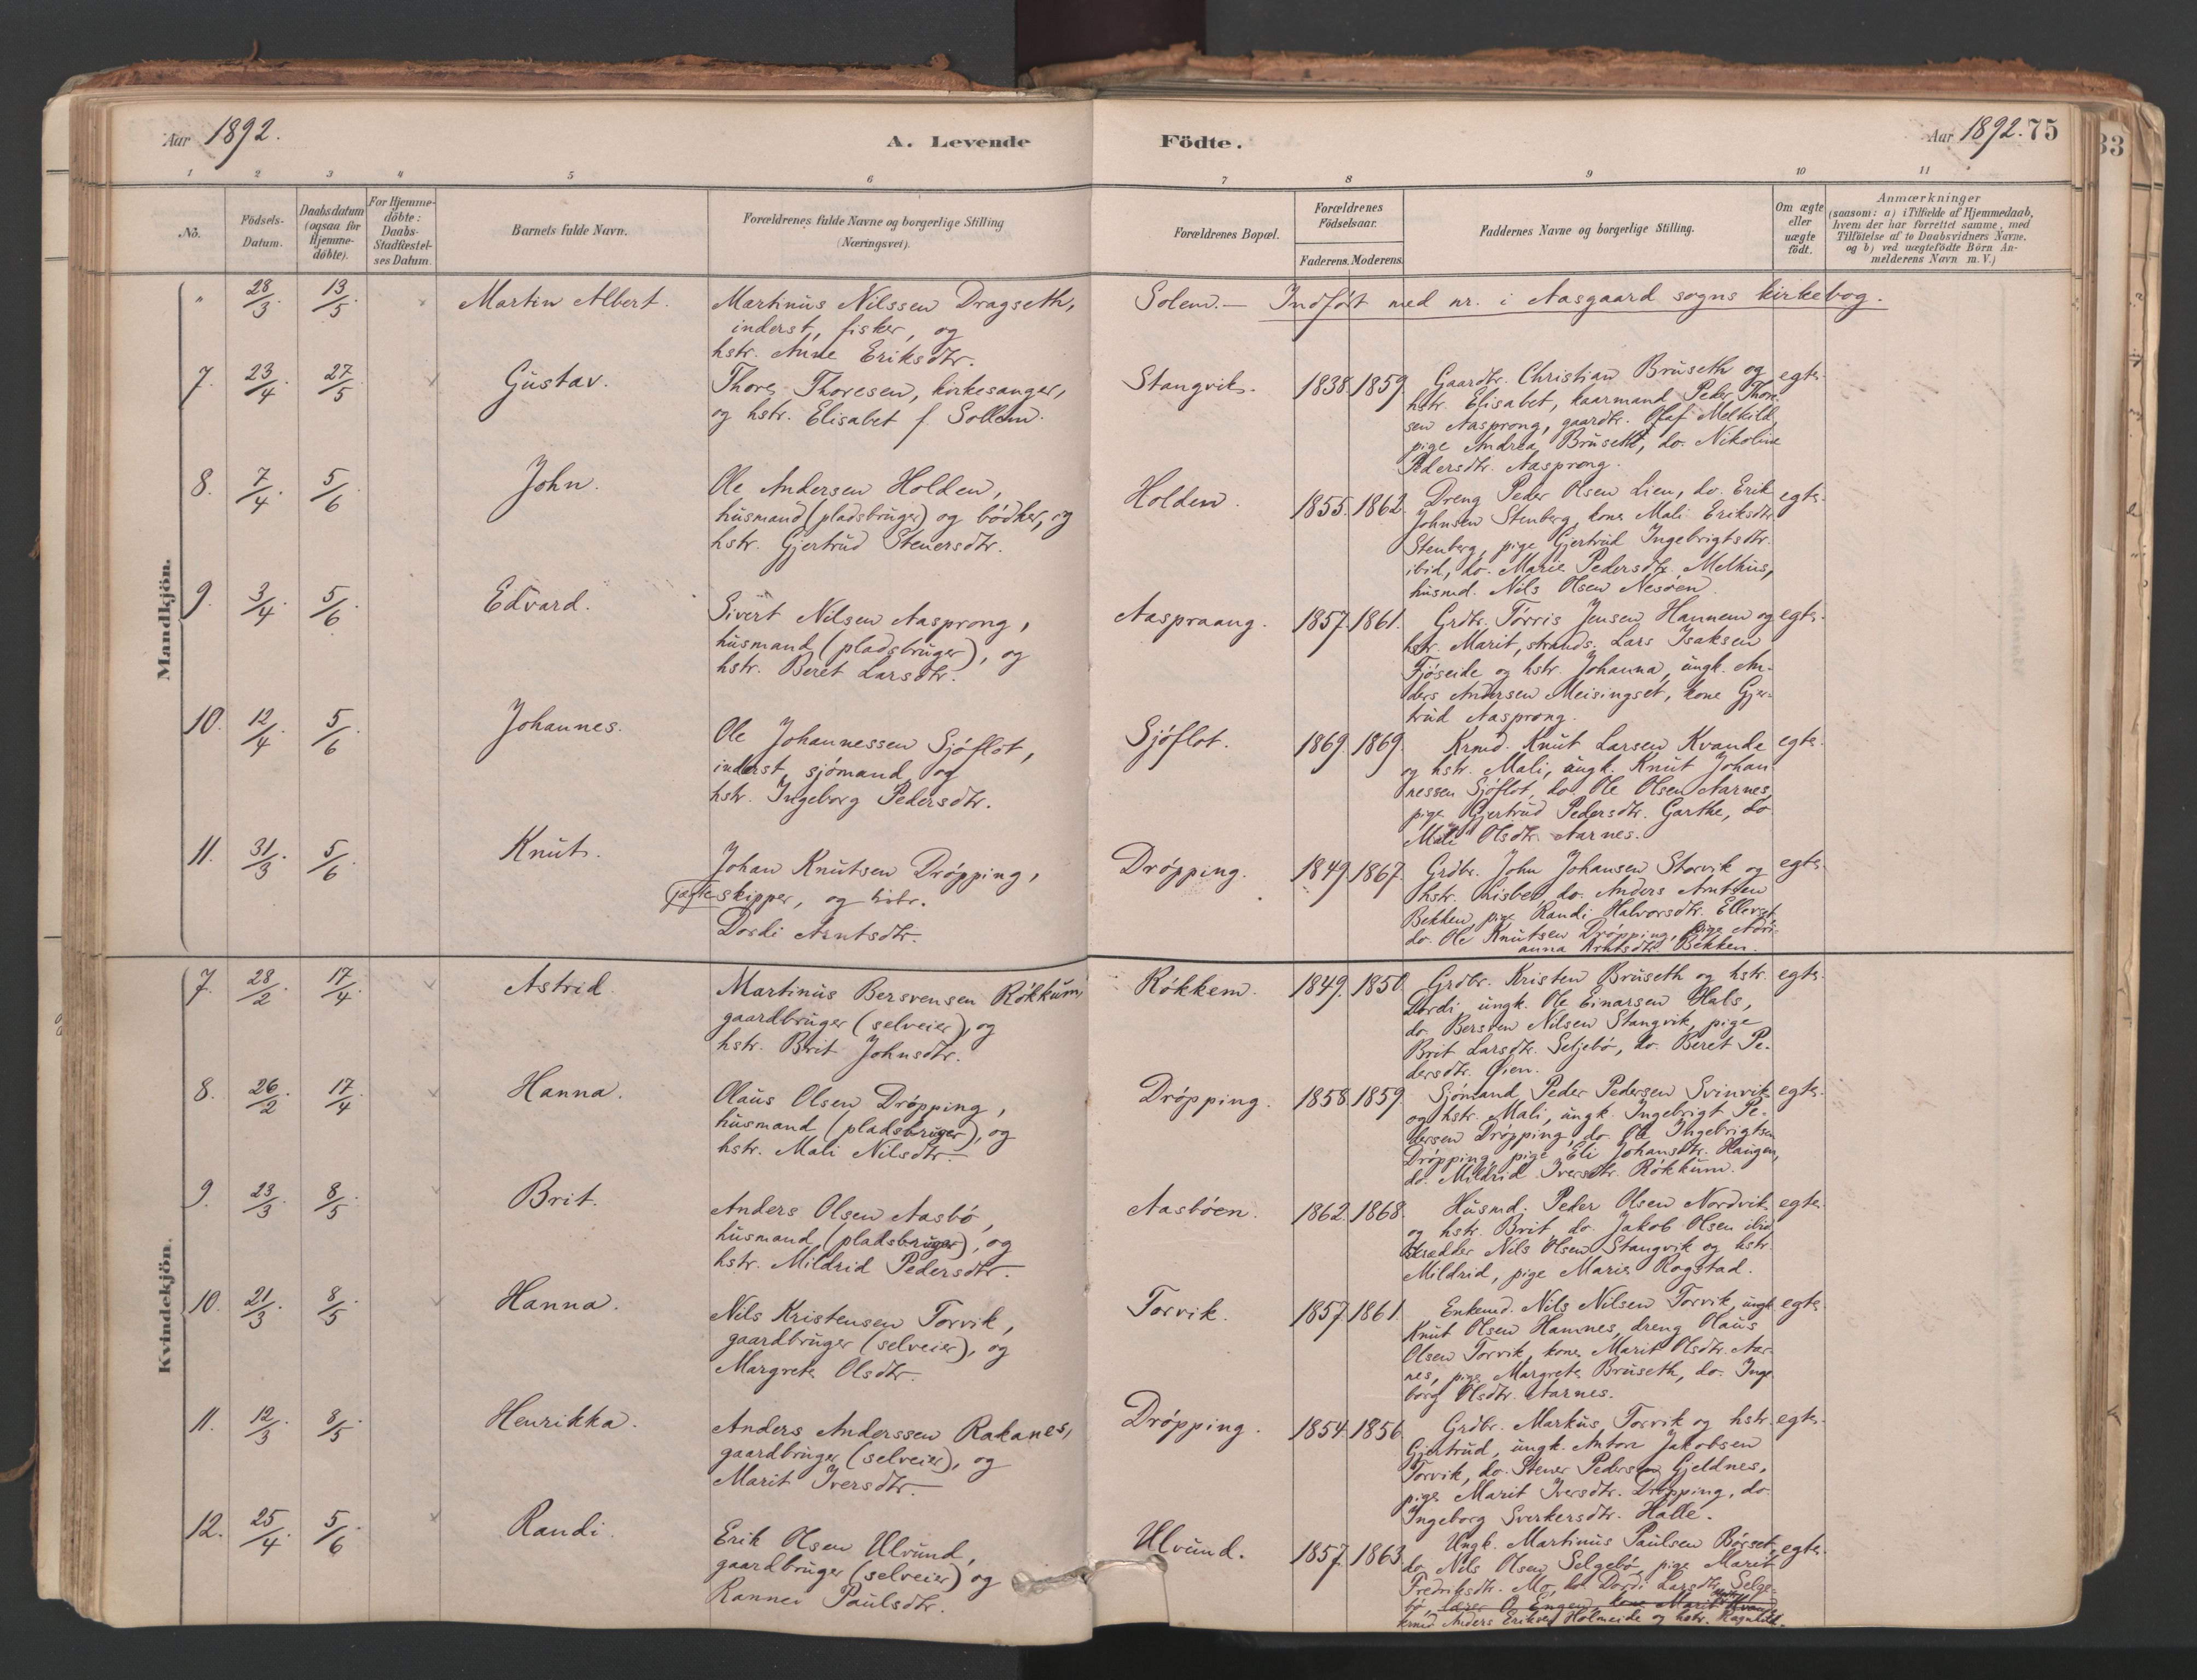 Aar 1892. A. Levende Födte. Aar 1892. 75
33
1 2 3 4 5 6 7 8 9 10 11
No. Födsels-Datum. Daabsdatum (ogsaa for Hjemme-döbte). For Hjemme-döbte: Daabs-Stadfæstel-ses Datum. Barnets fulde Navn. Forældrenes fulde Navne og borgerlige Stilling (Næringsvei). Forældrenes Bopæl. Forældrenes Födselsaar. Faderens. Moderens. Faddernes Navne og borgerlige Stilling. Om ægte eller uægte födt. Anmærkninger
(saasom: a) i Tilfælde af Hjemmedaab,
hvem der har forrettet samme, med
Tilföielse af to Daabsvidners Navne.
og b) ved uegtefödte Börn An-
melderens Navn m. V.)
Mandkjön.
" 28/3. 13/5. Martin Albert. Martinus Nilssen Dragseth,
inderst, fisker, og
hstr. Anne Eriksdtr.
Solem. — Indført med nr. i Aasgaard sogns kirkebog.
7. 23/4. 27/5. Gustav. Thore Thoresen, kirkesanger,
og hstr. Elisabet f. Sollem.
Stangvik. 1838. 1859. Gaardbr. Christian Bruseth og egte.
hstr. Elisabet, kaarmand Peder Thore-
sen Aasprong, gaardbr. Olaf Melkild,
pige Andrea Bruseth, do. Nikoline
Pedersdtr. Aasprong.
8. 7/4. 5/6. John. Ole Andersen Holden,
husmand (pladsbruger) og bødker, og
hstr. Gjertrud Stenersdtr.
Holden. 1855. 1862. Dreng Peder Olsen Lien, do. Erik egte.
Johnsen Stenberg, kone Mali Eriksdtr.
Stenberg, pige Gjertrud Ingebrigtsdtr.
ibid, do. Marie Pedersdtr. Melhus,
husmd. Nils Olsen Nesøen.
9. 3/4. 5/6. Edvard. Sivert Nilsen Aasprong,
husmand (pladsbruger), og
hstr. Beret Larsdtr.
Aaspraang. 1857. 1861. Grdbr. Tørris Jensen Hannem og egte.
hstr. Marit, strands. Lars Isaksen
Fjøseide og hstr. Johanna, ungk. An-
ders Andersen Meisingset, kone Gjer-
trud Aasprong.
10. 12/4. 5/6. Johannes. Ole Johannessen Sjøflot,
inderst, sjømand, og
hstr. Ingeborg Pedersdtr.
Sjøflot. 1869. 1869. Krmd. Knut Larsen Kvande egte.
og hstr. Mali, ungk. Knut Johan-
nessen Sjøflot, do. Ole Olsen Aarnes,
pige Gjertrud Pedersdtr. Garthe, do.
Mali Olsdtr. Aarnes.
11. 31/3. 5/6. Knut. Johan Knutsen Drøpping,
jægteskipper, og hstr.
Dordi Arntsdtr.
Drøpping. 1849. 1867. Grdbr. John Johansen Storvik og egte.
hstr. Lisbet, do. Anders Arntsen
Bekken, pige Randi Halvorsdtr. Ellevset,
do. Ole Knutsen Drøpping, pige Adri-
anna Arntsdtr. Bekken.
Kvindekjön.
7. 28/2. 17/4. Astrid. Martinus Bersvensen Røkkum,
gaardbruger (selveier), og
hstr. Brit Johnsdtr.
Røkkem. 1849. 1850. Grdbr. Kristen Bruseth og hstr. egte.
Dordi, ungk. Ole Einarsen Hals,
do. Bersven Nilsen Stangvik, pige
Brit Larsdtr. Seljebø, do. Beret Pe-
dersdtr. Øien.
8. 26/2. 17/4. Hanna. Olaus Olsen Drøpping,
husmand (pladsbruger), og
hstr. Mali Nilsdtr.
Drøpping. 1858. 1859. Sjømand Peder Pedersen Svinvik egte.
og hstr. Mali, ungk. Ingebrigt Pe-
dersen Drøpping, do. Ole Ingebrigtsen
Drøpping, pige Eli Johansdtr. Haugen,
do. Mildrid Iversdtr. Røkkum.
9. 23/3. 8/5. Brit. Anders Olsen Aasbø,
husmand (pladsbruger), og
hstr. Mildrid Pedersdtr.
Aasbøen. 1862. 1868. Husmd. Peder Olsen Nordvik egte.
og hstr. Brit, do. Jakob Olsen ibid,
skrædder Nils Olsen Stangvik og hstr.
Mildrid, pige Marie Rogstad.
10. 21/3. 8/5. Hanna. Nils Kristensen Torvik,
gaardbruger (selveier), og
Margrete Olsdtr.
Torvik. 1857. 1861. Enkemd. Nils Nilsen Torvik, ungk. egte.
Knut Olsen Hamnes, dreng Olaus
Olsen Torvik, kone Marit Olsdtr. Aar-
nes, pige Margrete Bruseth, do. Inge-
borg Olsdtr. Aarnes.
11. 12/3. 8/5. Henrikka. Anders Anderssen Rakanes,
gaardbruger (selveier), og
Marit Iversdtr.
Drøpping. 1854. 1856. Grdbr. Markus Torvik og hstr. egte.
Gjertrud, ungk. Anton Jakobsen
Torvik, do. Stener Pedersen Gjeldnes,
pige Marit Iversdtr. Drøpping, do.
Ingeborg Sverkersdtr. Halle.
12. 25/4. 5/6. Randi. Erik Olsen Ulvund,
gaardbruger (selveier) og
Rannei Paulsdtr.
Ulvund. 1857. 1863. Ungk. Martinus Paulsen Børset, egte.
do. Nils Olsen Selgebø, pige Marit
Fredriksdtr. Mo, do. Dordi Larsdtr. Selge-
bø, lærer O. Engen, kone Marit
krmd. Anders Eriksen Holmeide og hstr. Ragnhild.